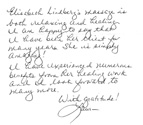 Elizabeth Lindberg's massage is
both relaxing and healing.
I am happy to say that
I have been her client for
many years. She is simply
amazing!
I have experienced numerous
benefits from her healing work
and I look forward to
many more.
With gratitude!